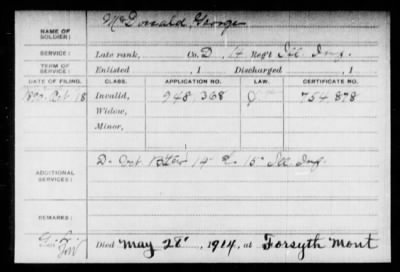 NAME OF SOLDIER: McDonald, George
SERVICE: Late rank, Co. D, 14 Reg't Ill Inf.
TERM OF SERVICE: Enlisted , 1 Discharged , 1
DATE OF FILING. CLASS. APPLICATION NO. LAW. CERTIFICATE NO.
Oct 18 Invalid, 948 368 754 878
Widow,
Minor,
ADDITIONAL SERVICES: D- 14 & 15" Ill Inf
REMARKS:
Died May 28", 1914, at Forsyth Mont